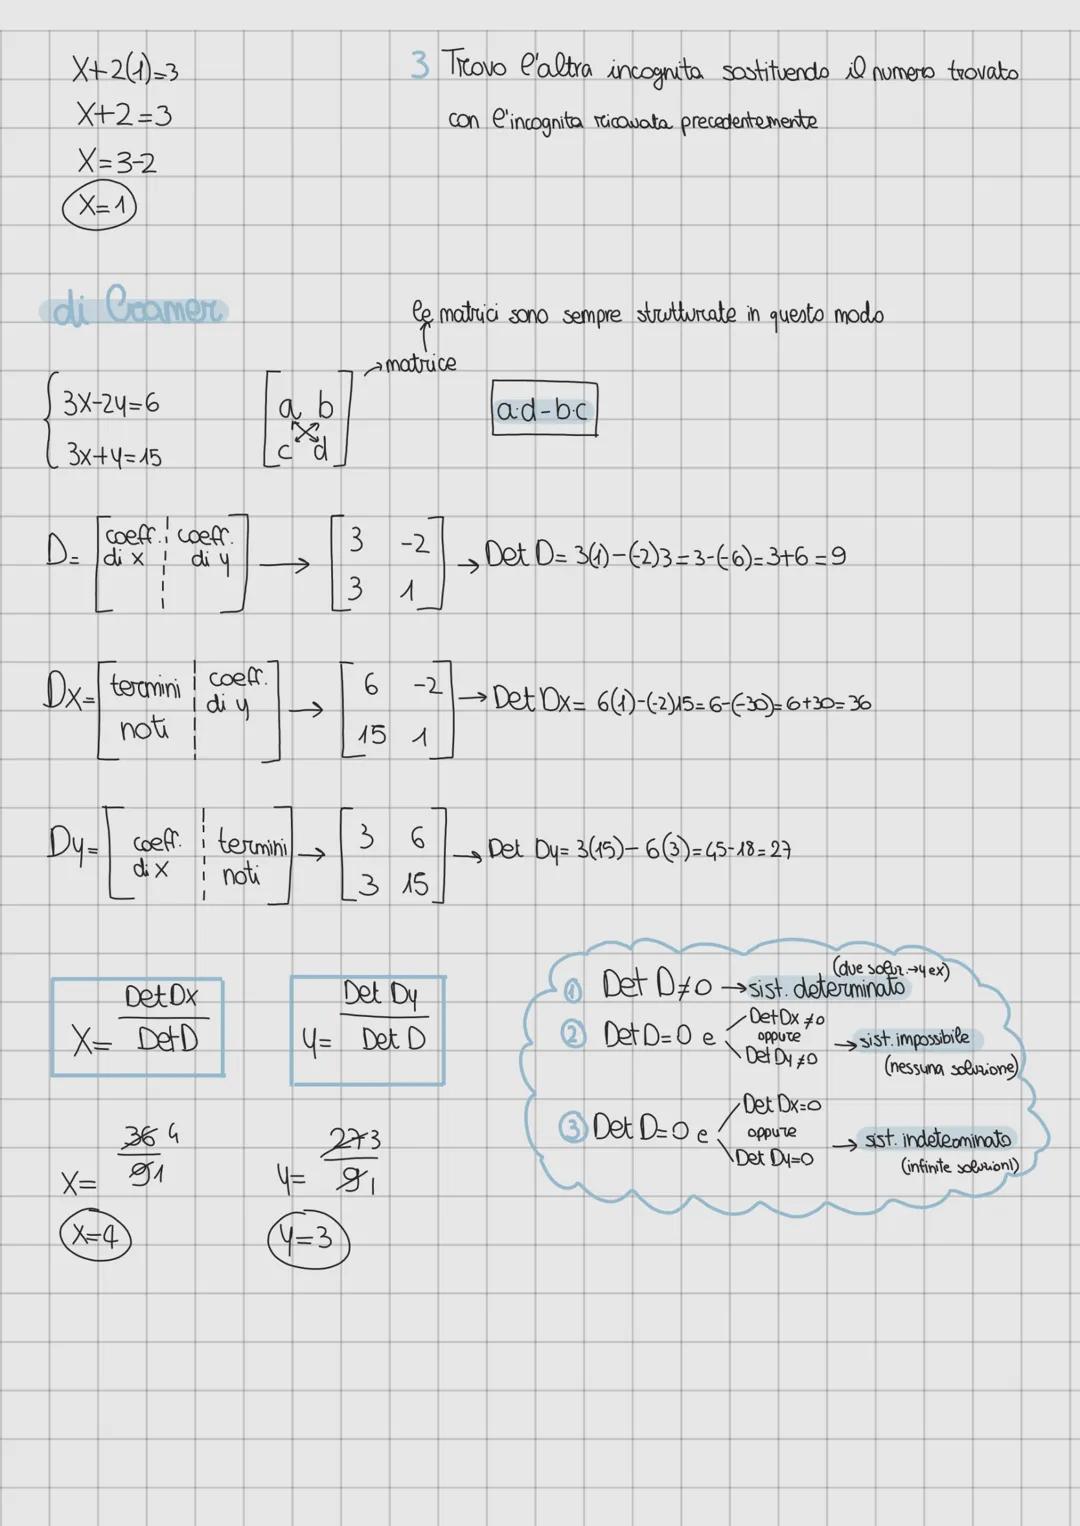 X+2(1)=3
X+2=3
X=3-2
X=1
3 Trovo l'altra incognita sostituendo il numero trovato
con l'incognita ricavata precedentemente
di Cramer
le matrici sono sempre strutturate in questo modo
→matrice
3X-2y=6
3x+y=15
a b
c d
a·d-b·c
D= coeff. di x coeff. di y → 3 -2 3 1 → Det D= 3(1)-(-2)3=3-(-6)=3+6=9
Dx= termini noti coeff. di y → 6 -2 15 1 → Det Dx= 6(1)-(-2)15=6-(-30)=6+30=36
Dy= coeff. di x termini noti → 3 6 3 15 → Det Dy= 3(15)-6(3)=45-18=27
X= Det Dx / Det D
y= Det Dy / Det D
X= 36 4 / 9 1
y= 27 3 / 9 1
X=4
y=3
(due soluz.→y e x)
1 Det D≠0 →sist. determinato
2 Det D=0 e Det Dx≠0 oppure Det Dy≠0 → sist. impossibile
(nessuna soluzione)
3 Det D=0 e Det Dx=0 oppure Det Dy=0 → sist. indeterminato
(infinite soluzioni)